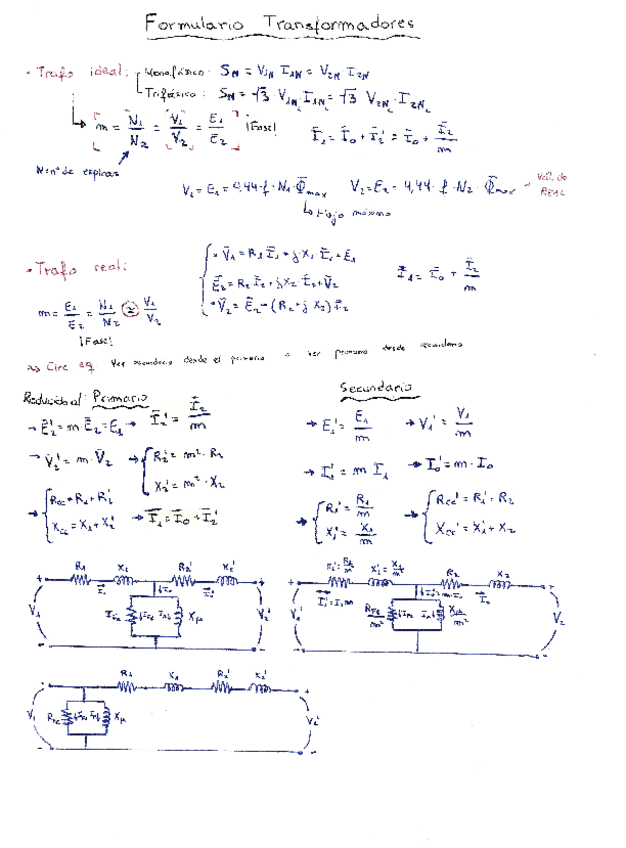 Formulario Transformadores
• Trafo ideal: Monofásico: S_N = V_1N I_1N = V_2N I_2N
Trifásico: S_N = √3 V_1N_L I_1N_L = √3 V_2N_L · I_2N_L
m = N1/N2 = V1/V2 = E1/E2 ¡Fase! Ī1 = Ī0 + Ī2' = Ī0 + Ī2/m
N=nº de espiras
V1 = E1 = 4,44 · f · N1 · Φ̄max V2 = E2 = 4,44 · f · N2 · Φ̄max
REAL
↳ flujo máximo
• Trafo real:
• V̄1 = R1 Ī1 + j X1 Ī1 + Ē1
Ē2 = R2 Ī2 + j X2 Ī2 + V̄2
• V̄2 = Ē2 - (R2 + j X2) Ī2
Ī1 = Ī0 + Ī2/m
m = E1/E2 = N1/N2 ≅ V1/V2
¡Fase!
Circ eq Ver secundario desde el primario o Ver primario desde secundario
Reducido al: Primario
→ Ē2' = m · Ē2 = E1 → Ī2' = Ī2/m
→ V̄2' = m · V̄2 → { R2' = m² · R2
X2' = m² · X2
→ { Rcc = R1 + R2'
Xcc = X1 + X2'
→ Ī1 = Ī0 + Ī2'
Secundario
→ E1' = E1/m → V1' = V1/m
→ I1' = m I1 → I0' = m · I0
→ { R1' = R1/m
X1' = X1/m
→ { Rcc' = R1' + R2
Xcc' = X1' + X2
R1 X1 R2' X2'
V1 I_Fe Iμ Xμ V2'
R1' = R1/m² X1' = X1/m² R2 X2
V1' I1' = I1 m R_Fe/m² Xμ/m² I2 V2
R1 X1 R2' X2'
V1 R_Fe I_Fe Iμ Xμ V2'